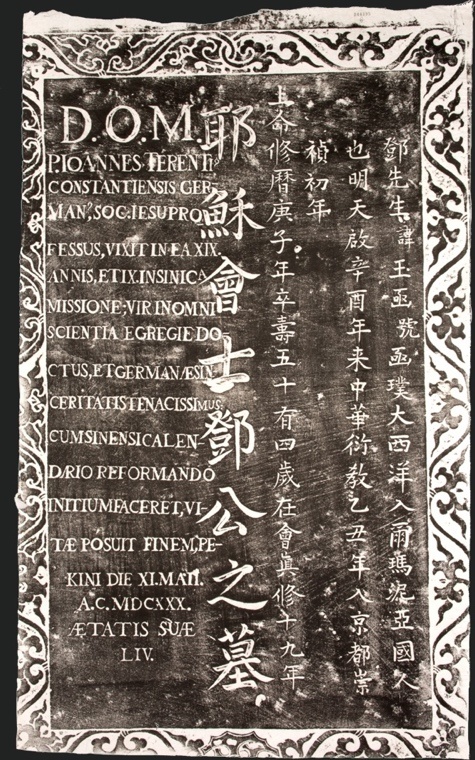 鄧先生諱王函號函璞大西洋入爾瑪泥亞國人
也明天啟辛酉年来中華衍教乙丑年入京都崇
禎初年
上命修曆庚子年卒壽五十有四歲在會眞修十九年
耶穌會士鄧公之墓
D.O.M.
P.IOANNES TERENTI⁹
CONSTANTIENSIS GER-
MAN⁹, SOC: IESU PRO
FESSUS, VIXIT IN EA XIX.
ANNIS, ET IX. IN SINICA
MISSIONE; VIR IN OMNI
SCIENTIA EGREGIE DO-
CTUS, ET GERMANÆ SIN-
CERITATIS TENACISSIMUS;
CUM SINENSI CALEN-
DARIO REFORMANDO
INITIUM FACERET, VI-
TÆ POSUIT FINEM, PE-
KINI DIE XI. MAII.
A.C. MDCXXX.
ÆTATIS SUÆ
LIV.